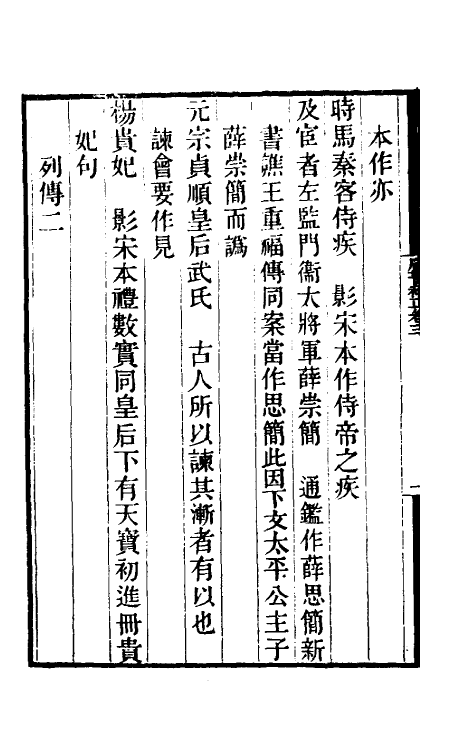 本作亦
時馬秦客侍疾　影宋本作侍帝之疾
及宦者左監門衞大將軍薛崇簡　通鑑作薛思簡新
書譙王重福傳同案當作思簡此因下文太平公主子
薛崇簡而譌
元宗貞順皇后武氏　古人所以諫其漸者有以也
諫會要作見
楊貴妃　影宋本禮數實同皇后下有天寶初進冊貴
妃句
列傳二